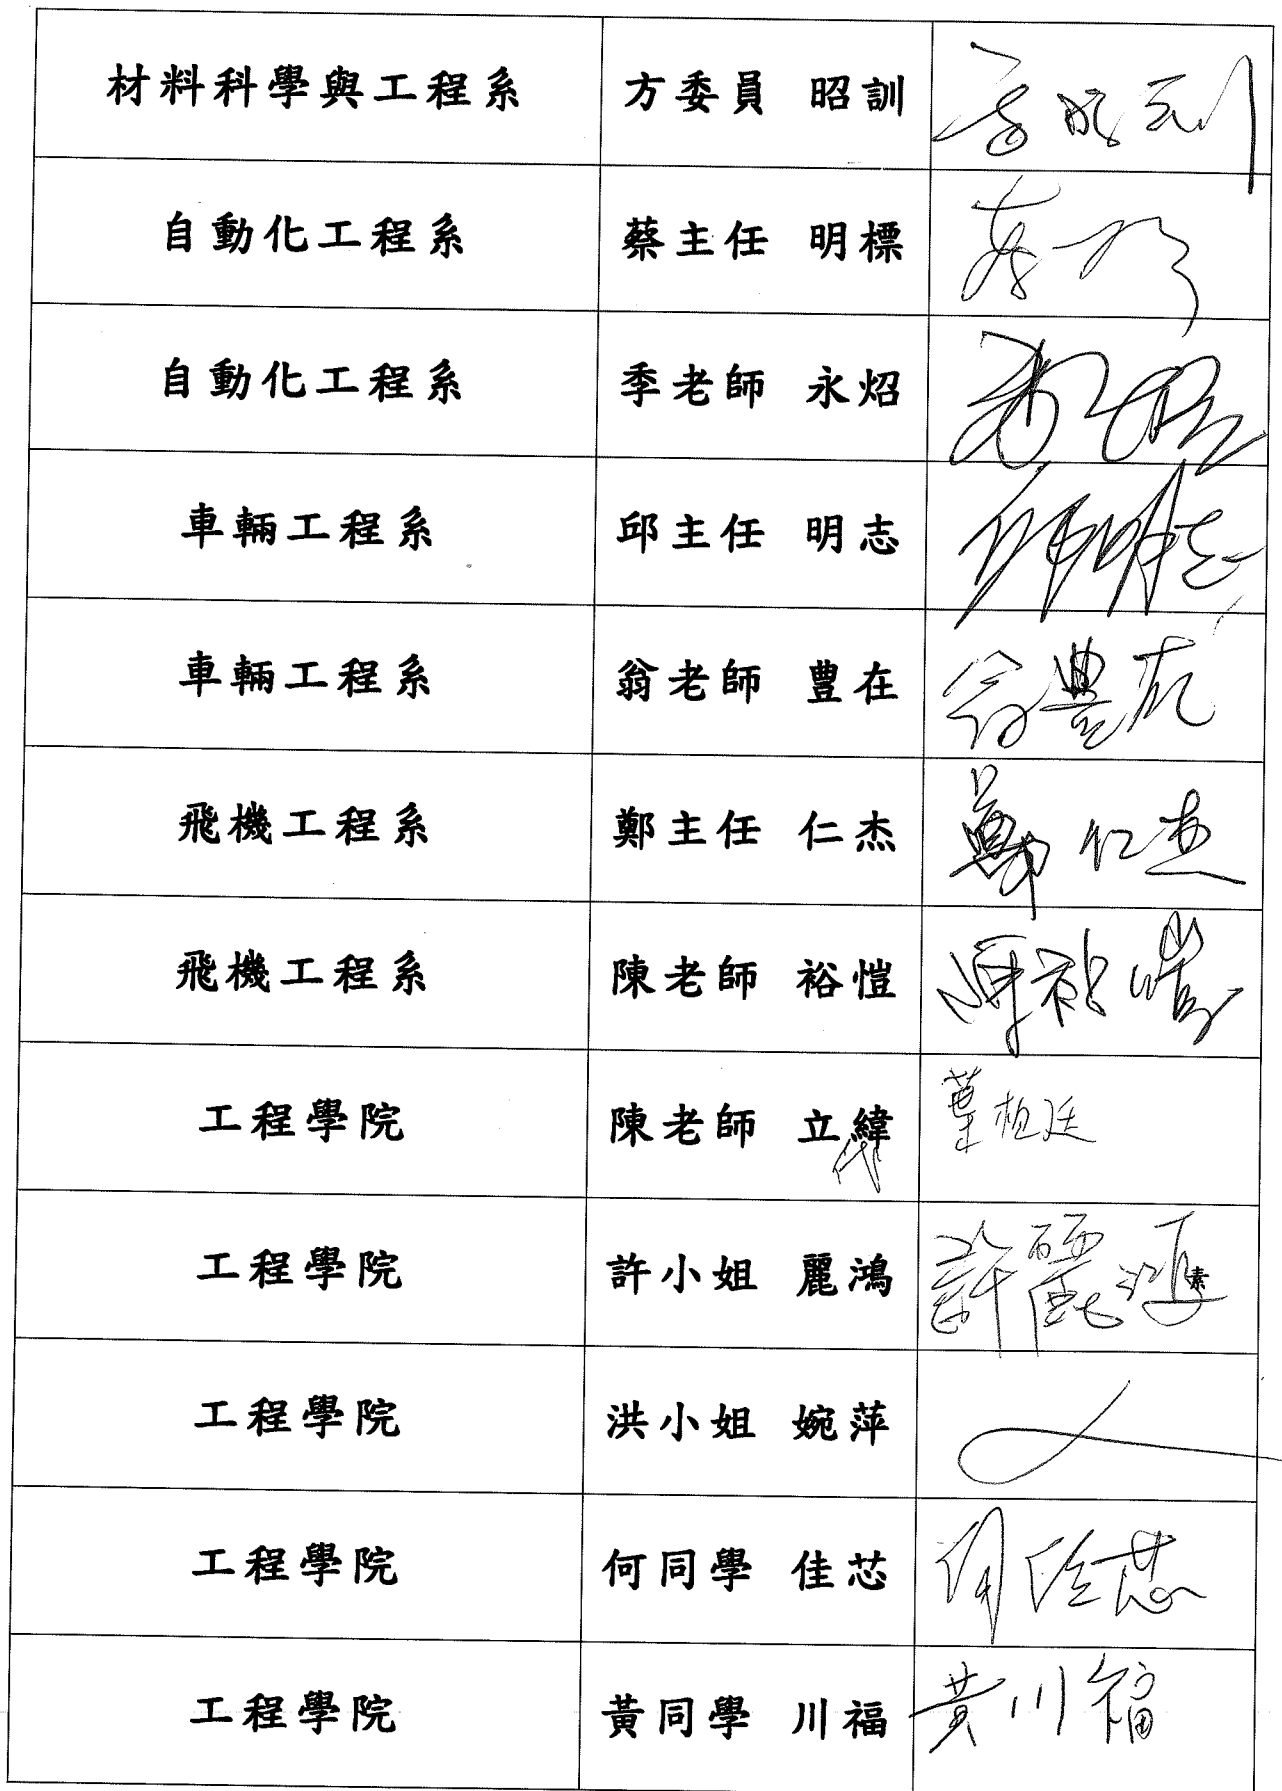 材料科學與工程系 方委員 昭訓 方昭訓
自動化工程系 蔡主任 明標
自動化工程系 季老師 永炤
車輛工程系 邱主任 明志 邱明志
車輛工程系 翁老師 豊在 翁豊在
飛機工程系 鄭主任 仁杰 鄭仁杰
飛機工程系 陳老師 裕愷 陳裕愷
工程學院 陳老師 立緯 葉桓廷
代
工程學院 許小姐 麗鴻 許麗鴻
素
工程學院 洪小姐 婉萍
工程學院 何同學 佳芯 何佳芯
工程學院 黃同學 川福 黃川福